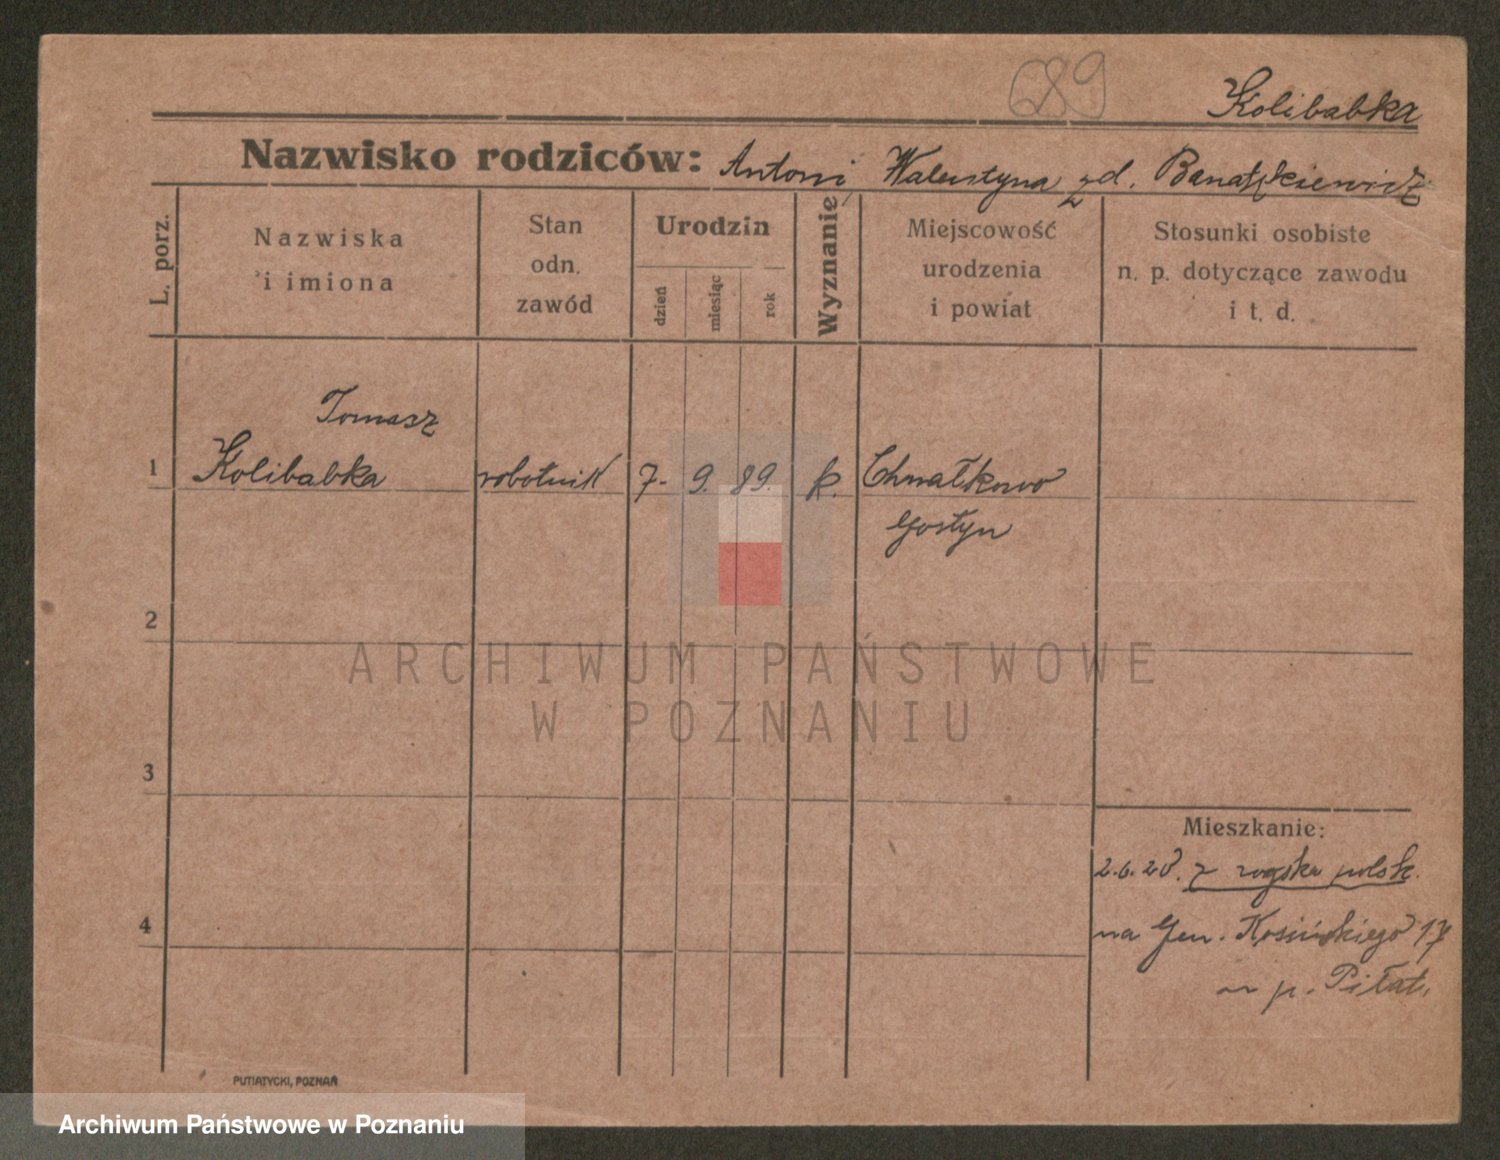 689
Kolibabka
Nazwisko rodziców: Antoni, Walentyna z d. Banaszkiewicz
L. porz.
Nazwiska
i imiona
Stan
odn.
zawód
Urodzin
dzień
miesiąc
rok
Wyznanie
Miejscowość
urodzenia
i powiat
Stosunki osobiste
n. p. dotyczące zawodu
i t. d.
Tomasz
1 Kolibabka robotnik 7. 9. 89. k. Chwałkowo
Gostyn
2
ARCHIWUM PAŃSTWOWE
W POZNANIU
3
Mieszkanie:
2.6.20. z polsk.
4
na Gen. Kosińskiego 17
p. Piłat.
PUTIATYCKI, POZNAŃ
Archiwum Państwowe w Poznaniu